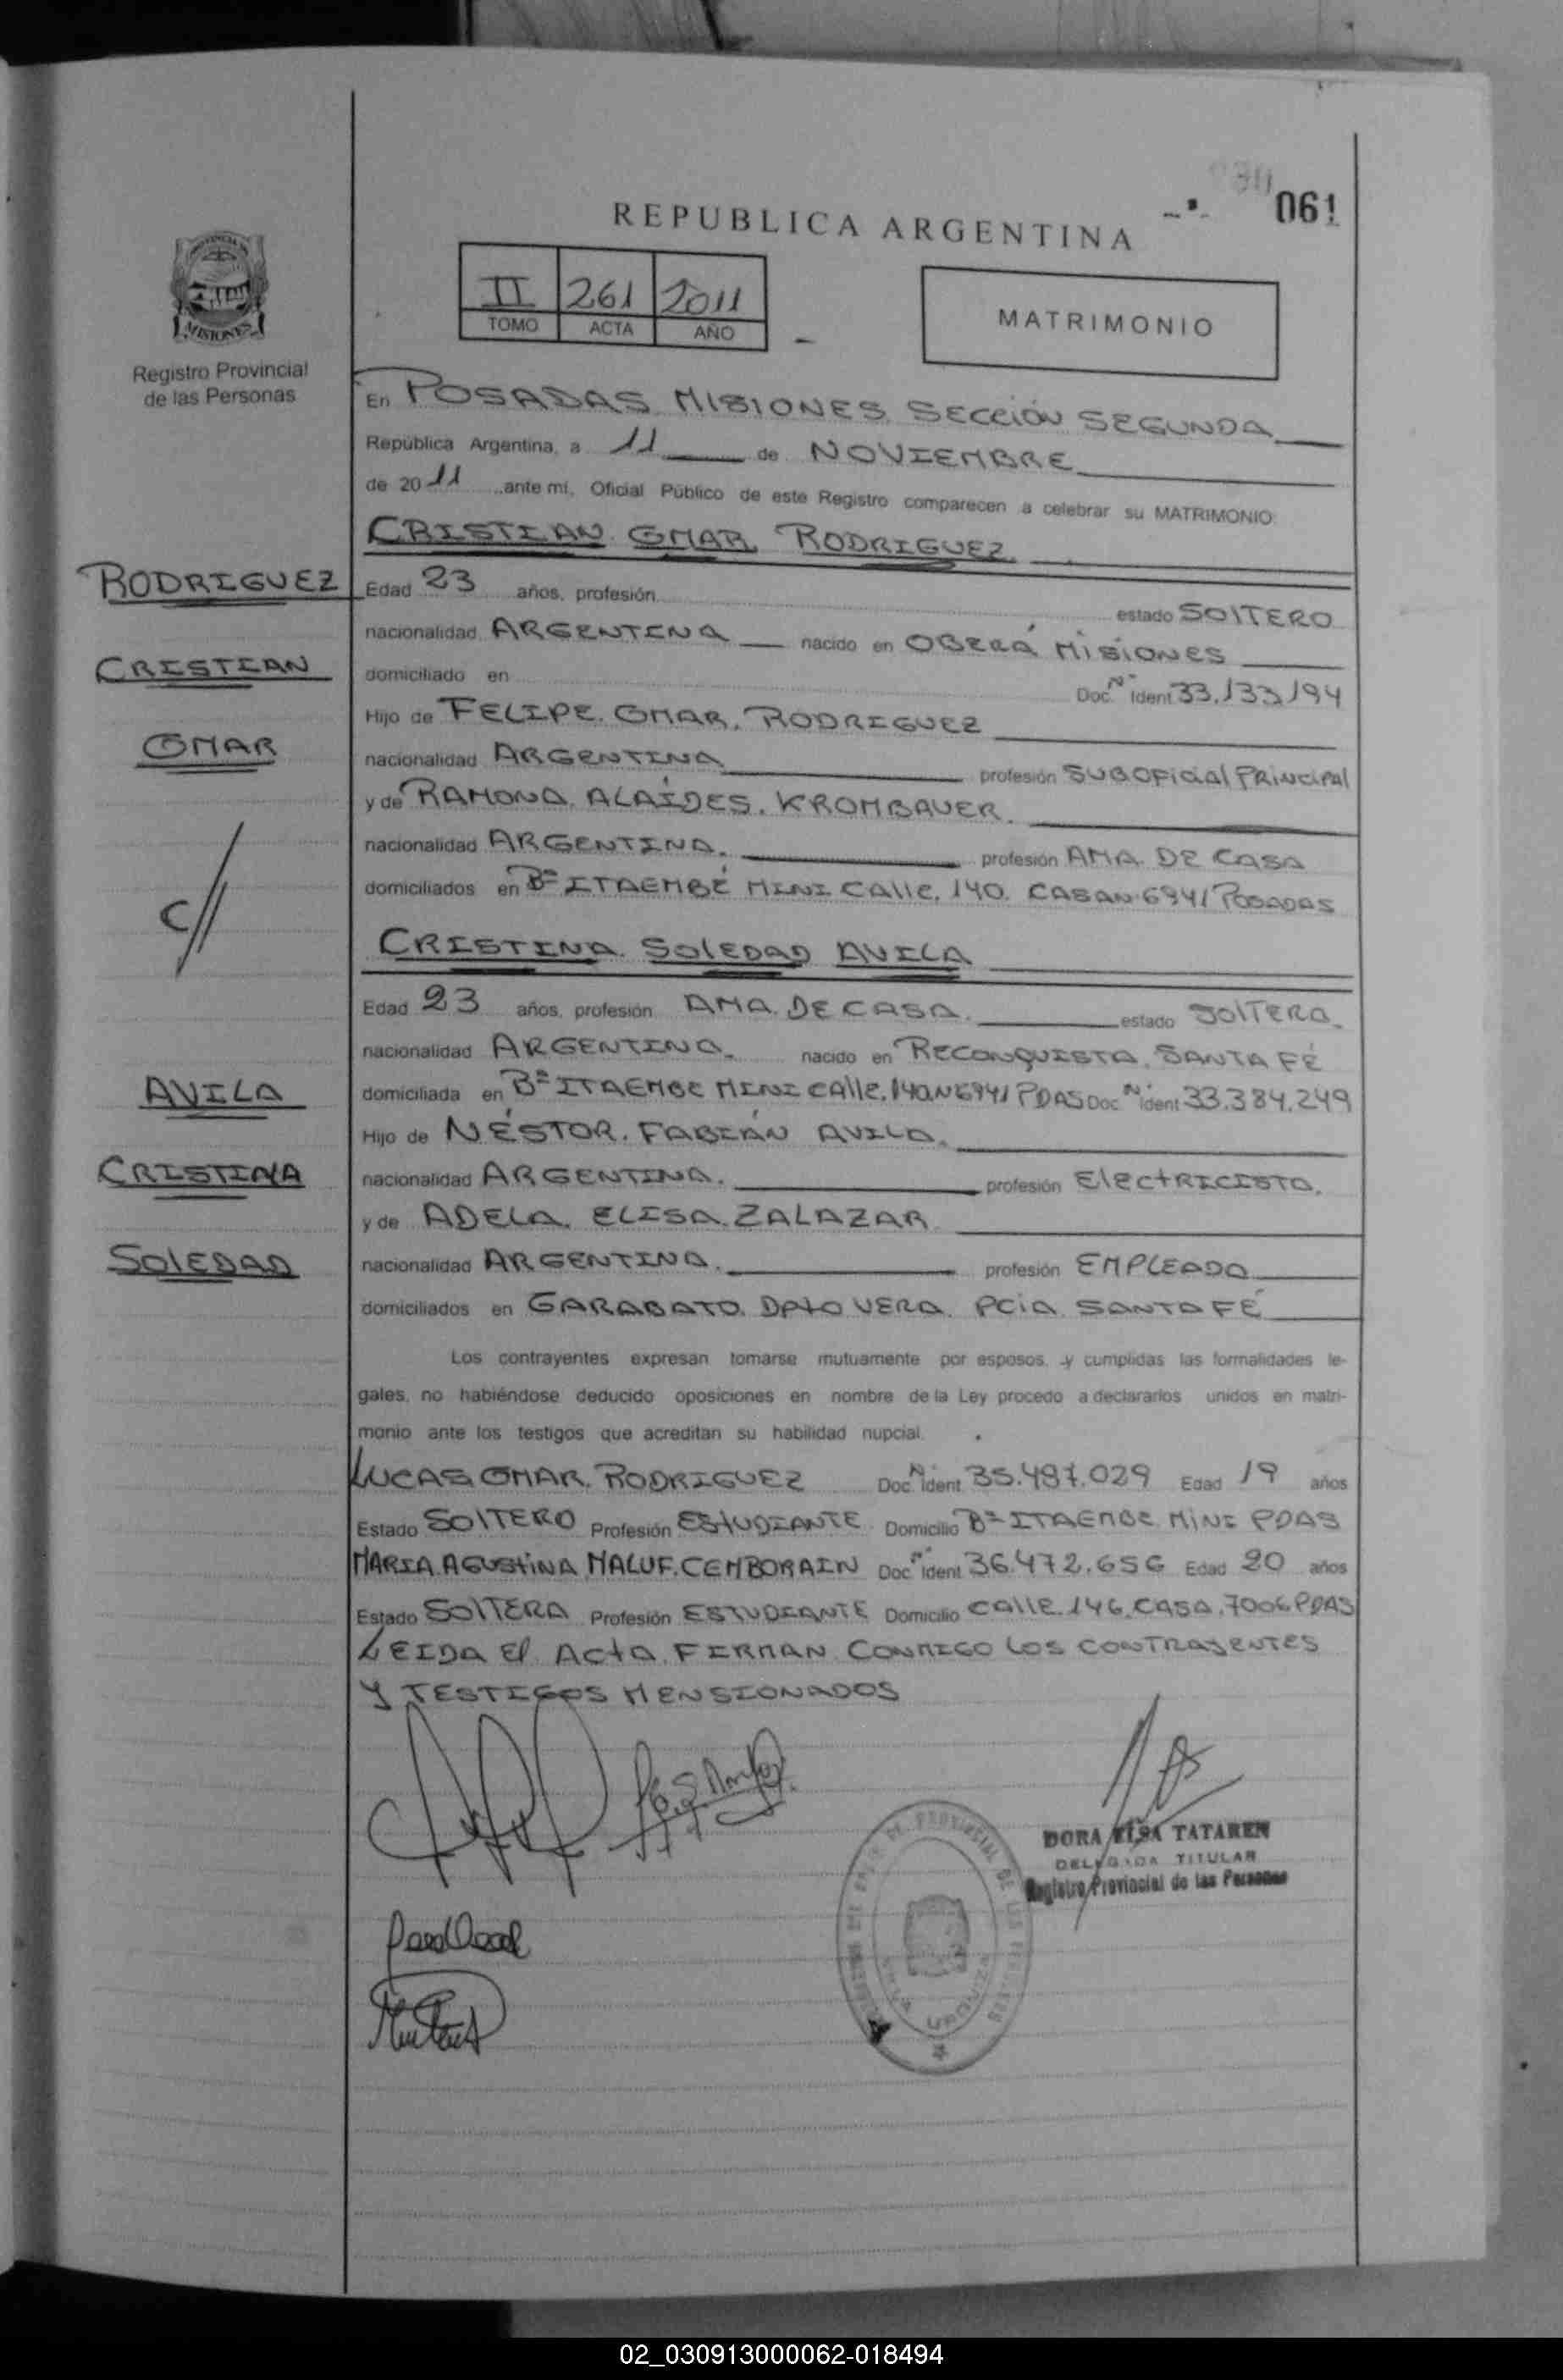 061
REPUBLICA ARGENTINA
II 261 2011
TOMO ACTA AÑO
MATRIMONIO
MISIONES
Registro Provincial
de las Personas
En POSADAS MISIONES SECCIÓN SEGUNDA
República Argentina, a 11 de NOVIEMBRE
de 2011 ante mí, Oficial Público de este Registro comparecen a celebrar su MATRIMONIO:
CRISTIAN OMAR RODRIGUEZ
RODRIGUEZ
Edad 23 años, profesión estado SOLTERO
nacionalidad ARGENTINA nacido en OBERÁ MISIONES
CRISTIAN
domiciliado en Doc. Nº Ident 33.133.194
Hijo de FELIPE. OMAR. RODRIGUEZ
OMAR
nacionalidad ARGENTINA profesión SUBOFICIAL PRINCIPAL
y de RAMONA. ALAÍDES. KROMBAUER.
nacionalidad ARGENTINA. profesión AMA DE CASA
domiciliados en Bº ITAEMBÉ MINI CALLE. 140. CASA N 6941 POSADAS
C//
CRISTINA SOLEDAD AVILA
Edad 23 años, profesión AMA. DE CASA. estado SOLTERA.
nacionalidad ARGENTINA. nacido en RECONQUISTA. SANTA FÉ
AVILA
domiciliada en Bº ITAEMBE MINI CALLE. 140 N 6941 PDAS Doc. Nº Ident 33.384.249
Hijo de NÉSTOR. FABIÁN AVILA.
CRISTINA
nacionalidad ARGENTINA. profesión ELECTRICISTA.
y de ADELA. ELISA. ZALAZAR
SOLEDAD
nacionalidad ARGENTINA. profesión EMPLEADA
domiciliados en GARABATO. DPTO VERA. PCIA SANTA FÉ
Los contrayentes expresan tomarse mutuamente por esposos, y cumplidas las formalidades le-
gales, no habiéndose deducido oposiciones en nombre de la Ley procedo a declararlos unidos en matri-
monio ante los testigos que acreditan su habilidad nupcial.
LUCAS OMAR. RODRIGUEZ Doc. Nº Ident 35.487.029 Edad 19 años
Estado SOLTERO Profesión ESTUDIANTE Domicilio Bº ITAEMBE MINI PDAS
MARIA AGUSTINA MALUF. CEMBORAIN Doc. Nº Ident 36.472.656 Edad 20 años
Estado SOLTERA Profesión ESTUDIANTE Domicilio CALLE. 146. CASA. 7006 PDAS
LEIDA EL ACTA. FIRMAN CONMIGO LOS CONTRAYENTES
Y TESTIGOS MENSIONADOS
DORA ELSA TATAREN
DELEGADA TITULAR
Registro Provincial de las Personas
02_030913000062-018494